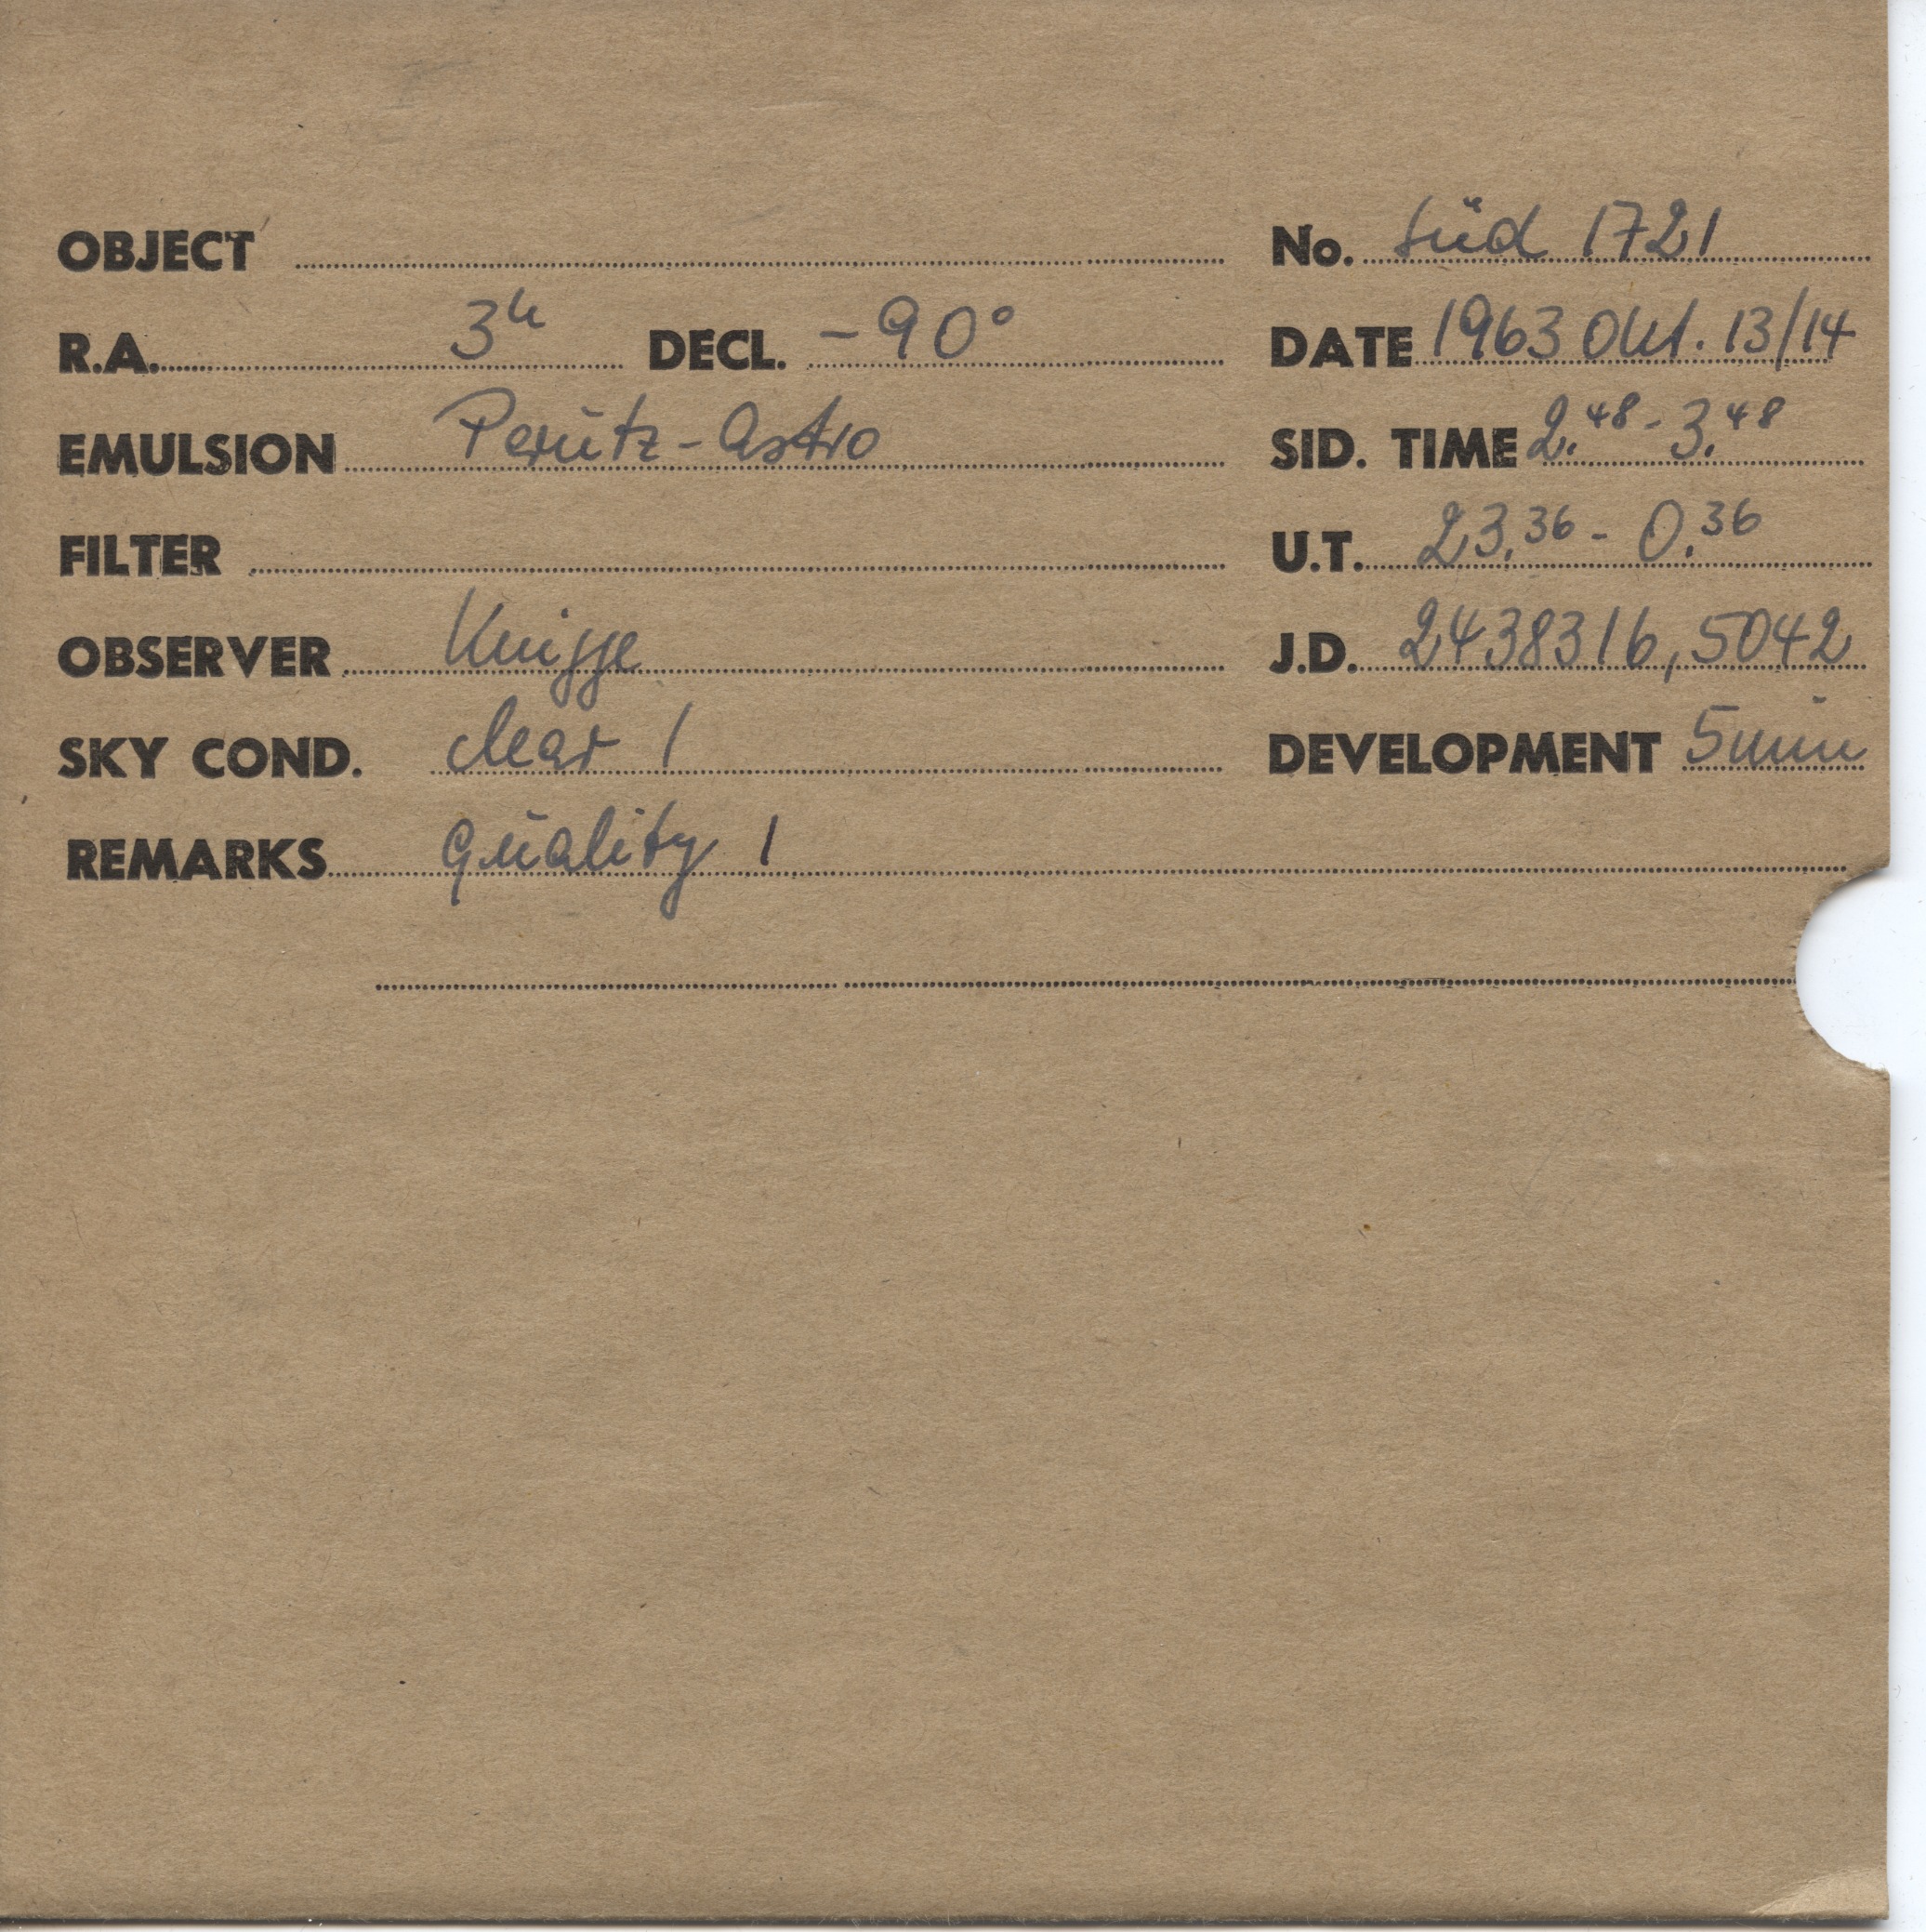 OBJECT No. Süd 1721
R.A. 3h DECL. -90° DATE 1963 Okt. 13/14
EMULSION Perutz-Astro SID. TIME 2.48 - 3.48
FILTER U.T. 23.36 - 0.36
OBSERVER Knigge J.D. 2438316,5042
SKY COND. clear 1 DEVELOPMENT 5 min
REMARKS quality 1